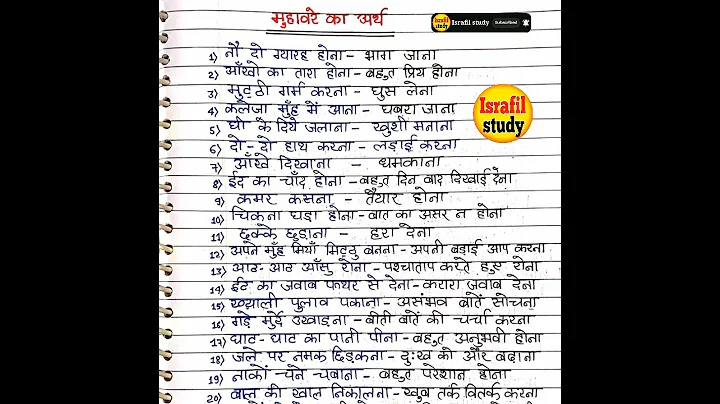 मुहावरे का अर्थ
Israfil study
Israfil study
Subscribed
1) नौ दो ग्यारह होना - भाग जाना
2) आँखो का तारा होना - बहुत प्रिय होना
3) मुट्ठी गर्म करना - घुस लेना
4) कलेजा मुँह में आना - घबरा जाना
5) घी के दिये जलाना - खुशी मनाना
6) दो-दो हाथ करना - लड़ाई करना
7) आँखे दिखाना - धमकाना
8) ईद का चाँद होना - बहुत दिन बाद दिखाई देना
9) कमर कसना - तैयार होना
10) चिकना घड़ा होना - बात का असर न होना
11) छक्के छुड़ाना - हरा देना
Israfil study
12) अपने मुँह मियाँ मिट्ठु बनना - अपनी बड़ाई आप करना
13) आठ-आठ आँसु रोना - पश्चाताप करते हुए रोना
14) ईंट का जवाब पत्थर से देना - करारा जवाब देना
15) ख्याली पुलाव पकाना - असंभव बातें सोचना
16) गड़े मुर्दे उखाड़ना - बीती बातें की चर्चा करना
17) घाट-घाट का पानी पीना - बहुत अनुभवी होना
18) जले पर नमक छिड़कना - दुःख को और बढ़ाना
19) नाकों चने चबाना - बहुत परेशान होना
20) बाल की खाल निकालना - खुब तर्क वितर्क करना